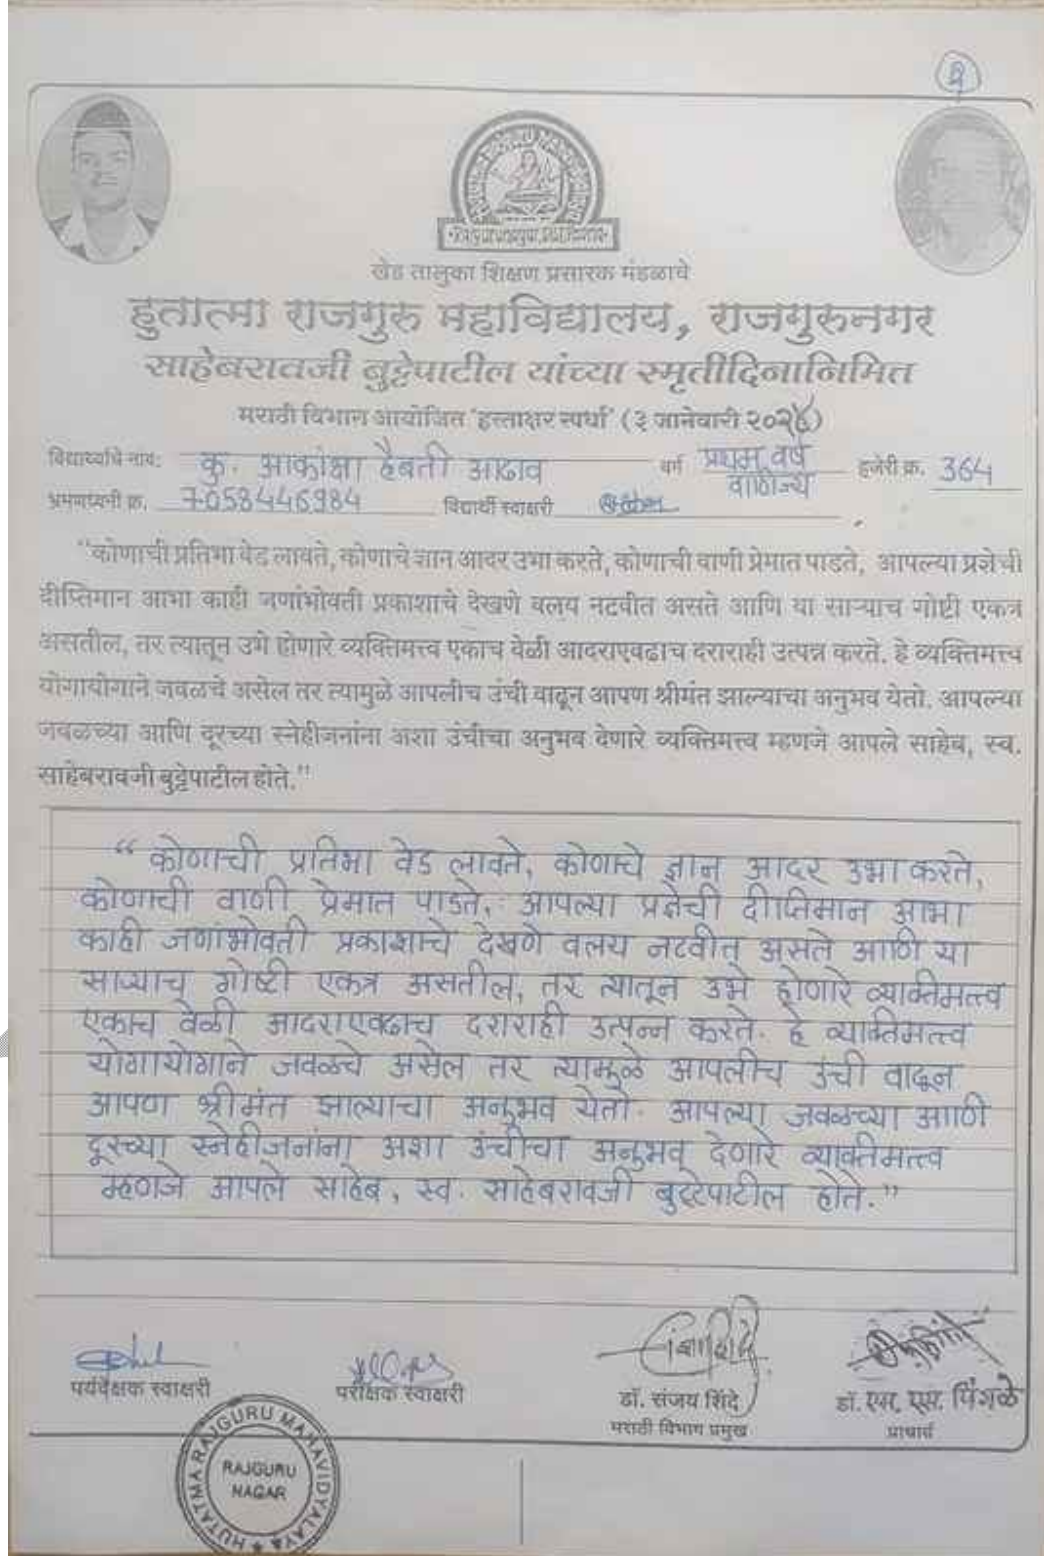 खेड तालुका शिक्षण प्रसारक मंडळाचे
हुतात्मा राजगुरु महाविद्यालय, राजगुरुनगर
साहेबरावजी बुट्टेपाटील यांच्या स्मृतीदिनानिमित
मराठी विभाग आयोजित 'हस्ताक्षर स्पर्धा' (३ जानेवारी
विद्यार्थ्याचे नाव: कु. आकांक्षा हैबती आढाव वर्ग प्रथम वर्ष वाणिज्य हजेरी क्र. 364
भ्रमणध्वनी क्र. 7058446984 विद्यार्थी स्वाक्षरी
"कोणाची प्रतिभा वेड लावते, कोणाचे ज्ञान आदर उभा करते, कोणाची वाणी प्रेमात पाडते, आपल्या प्रज्ञेची
दीप्तिमान आभा काही जणांभोवती प्रकाशाचे देखणे वलय नटवीत असते आणि या साऱ्याच गोष्टी एकत्र
असतील, तर त्यातून उभे होणारे व्यक्तिमत्त्व एकाच वेळी आदराएवढाच दराराही उत्पन्न करते. हे व्यक्तिमत्त्व
योगायोगाने जवळचे असेल तर त्यामुळे आपलीच उंची वाढून आपण श्रीमंत झाल्याचा अनुभव येतो. आपल्या
जवळच्या आणि दूरच्या स्नेहीजनांना अशा उंचीचा अनुभव देणारे व्यक्तिमत्त्व म्हणजे आपले साहेब, स्व.
साहेबरावजी बुट्टेपाटील होते."
“ कोणाची प्रतिभा वेड लावते, कोणाचे ज्ञान आदर उभा करते,
कोणाची वाणी प्रेमात पाडते, आपल्या प्रज्ञेची दीप्तिमान आभा
काही जणांभोवती प्रकाशाचे देखणे वलय नटवीत असते आणि या
साऱ्याच गोष्टी एकत्र असतील, तर त्यातून उभे होणारे व्यक्तिमत्त्व
एकाच वेळी आदराएवढाच दराराही उत्पन्न करते. हे व्यक्तिमत्त्व
योगायोगाने जवळचे असेल तर त्यामुळे आपलीच उंची वाढून
आपण श्रीमंत झाल्याचा अनुभव येतो. आपल्या जवळच्या आणि
दूरच्या स्नेहीजनांना अशा उंचीचा अनुभव देणारे व्यक्तिमत्त्व
म्हणजे आपले साहेब, स्व. साहेबरावजी बुट्टेपाटील होते.”
पर्यवेक्षक स्वाक्षरी परीक्षक स्वाक्षरी डॉ. संजय शिंदे डॉ. एस. एस. पिंगळे
मराठी विभाग प्रमुख प्राचार्य
HUTATMA RAJGURU MAHAVIDYALAYA
RAJGURU
NAGAR